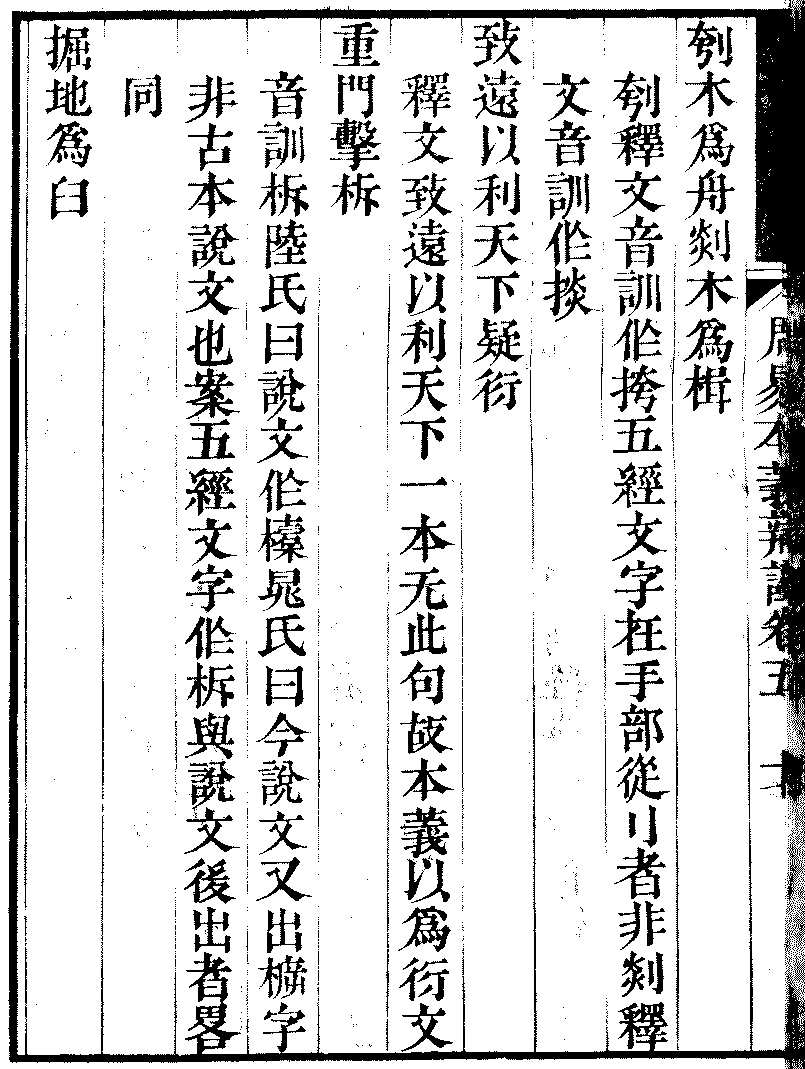 刳木爲舟剡木爲楫
刳釋文音訓作挎五經文字在手部從刂者非剡釋
文音訓作掞
致遠以利天下疑衍
釋文致遠以利天下一本无此句故本義以爲衍文
重門擊柝
音訓柝陸氏曰說文作㯱晁氏曰今說文又出㯱字
非古本說文也案五經文字作柝與說文後出者畧
同
掘地爲臼
周易本義辨證卷五